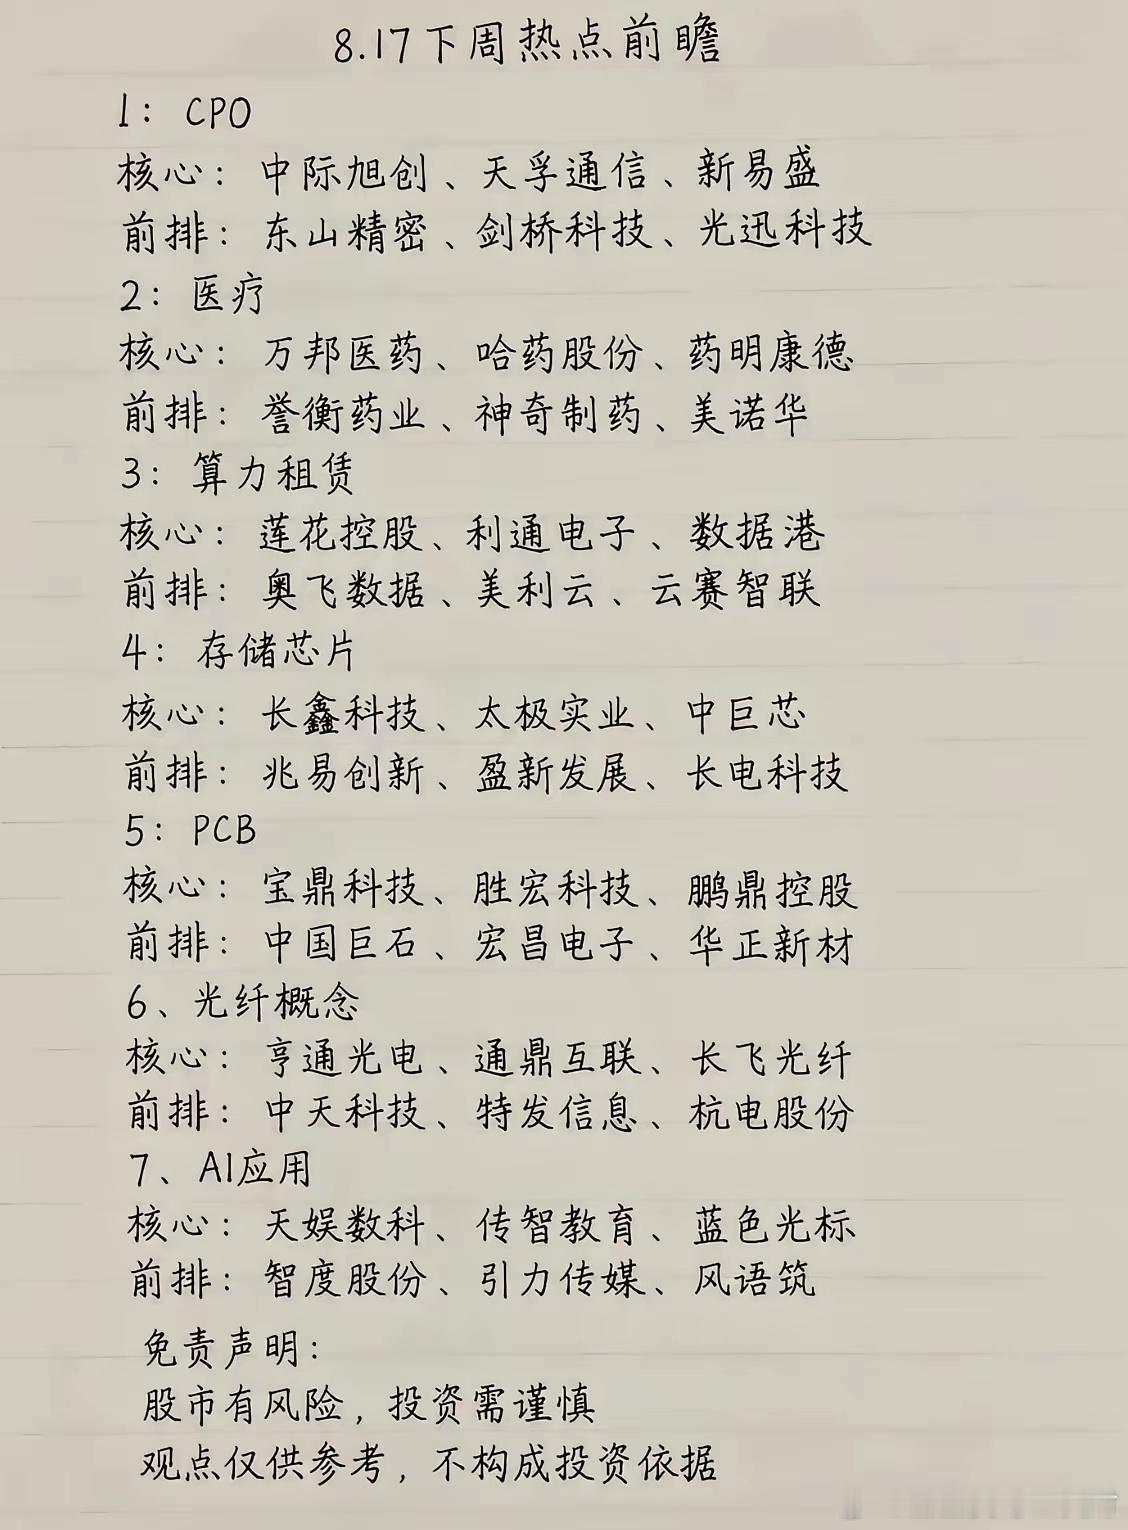 8.17下周热点前瞻
1：CPO
核心：中际旭创、天孚通信、新易盛
前排：东山精密、剑桥科技、光迅科技
2：医疗
核心：万邦医药、哈药股份、药明康德
前排：誉衡药业、神奇制药、美诺华
3：算力租赁
核心：莲花控股、利通电子、数据港
前排：奥飞数据、美利云、云赛智联
4：存储芯片
核心：长鑫科技、太极实业、中巨芯
前排：兆易创新、盈新发展、长电科技
5：PCB
核心：宝鼎科技、胜宏科技、鹏鼎控股
前排：中国巨石、宏昌电子、华正新材
6、光纤概念
核心：亨通光电、通鼎互联、长飞光纤
前排：中天科技、特发信息、杭电股份
7、AI应用
核心：天娱数科、传智教育、蓝色光标
前排：智度股份、引力传媒、风语筑
免责声明：
股市有风险，投资需谨慎
观点仅供参考，不构成投资依据